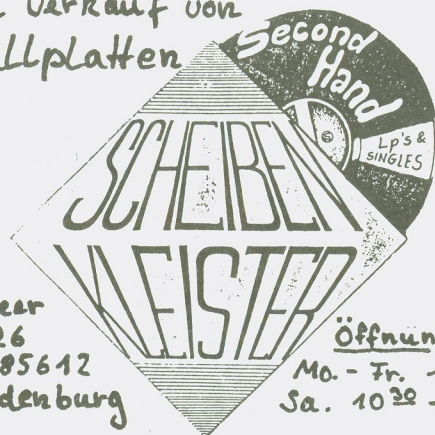 Verkauf von
llplatten
Second
Hand
Lp's &
SINGLES
SCHEIBEN
KLEISTER
26
85612
denburg
Öffnun
Mo. - Fr.
Sa. 10 30 -